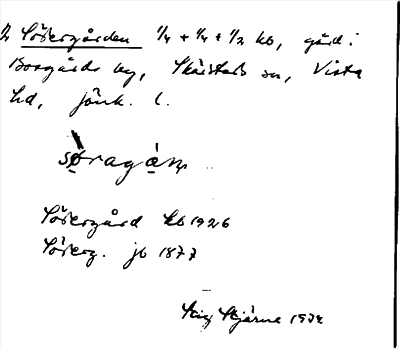 2 Södergården 1/4 + 1/4 + 1/2 kb, gård i
Boargårds by, Skärstads sn, Vista
hd, Jönk. l.
søragán
Södergård kb 1926
Söderg. jb 1877
Stig Stjärne 1974